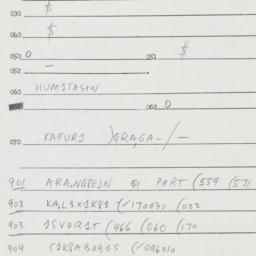 030 $
040 $
050 0 051 $
052 —
060 HUMITASIN
062 0
070 KAPURI )GRAGA-/-
901 ARA,NGREJN PART (559 (571
902 KA,L3XIK81 (/170030 (022
903 ISVORIT (466 (060 (170
904 CIK8ABORIS (/096010